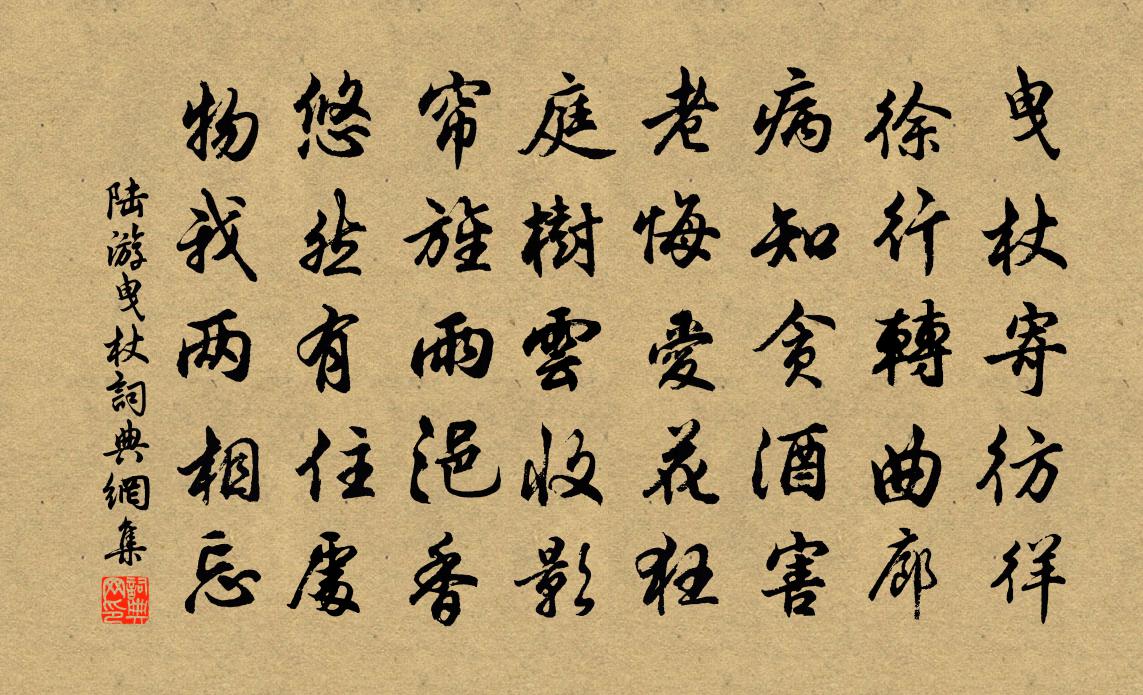 曳杖寄彷徉
徐行轉曲廊
病知贪酒害
老悔愛花狂
庭樹雲收影
帘旌雨浥香
悠然有住處
物我两相忘
陆游曳杖詞典網集
詞典网印